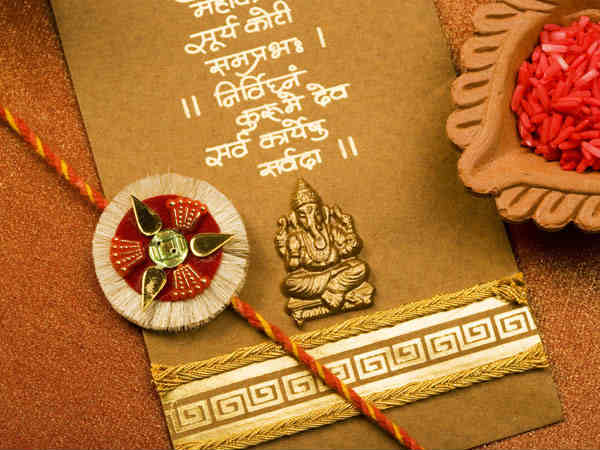 सूर्य कोटी
समप्रभः |
|| निर्विघ्नं
कुरुमे देव
सर्व कार्येषु
सर्वदा ||